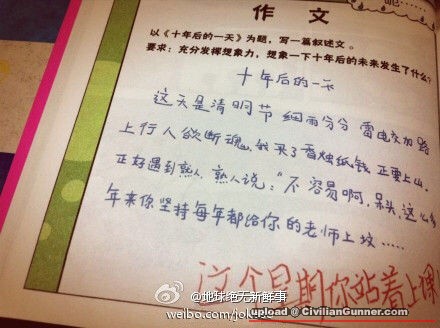 作 文
以《十年后的一天》为题，写一篇叙述文。
要求：充分发挥想象力，想象一下十年后的未来发生了什么？
十年后的一天
这天是清明节 细雨分分 雷电交加 路
上行人欲断魂，我买了香烛纸钱，正要上山，
正好遇到熟人，熟人说：“不容易啊，呆头，这么多
年来你坚持每年都给你的老师上坟……
这个星期你站着上课
@地球绝无新鲜事
weibo.com/jokes
upload @ CivilianGunner.com